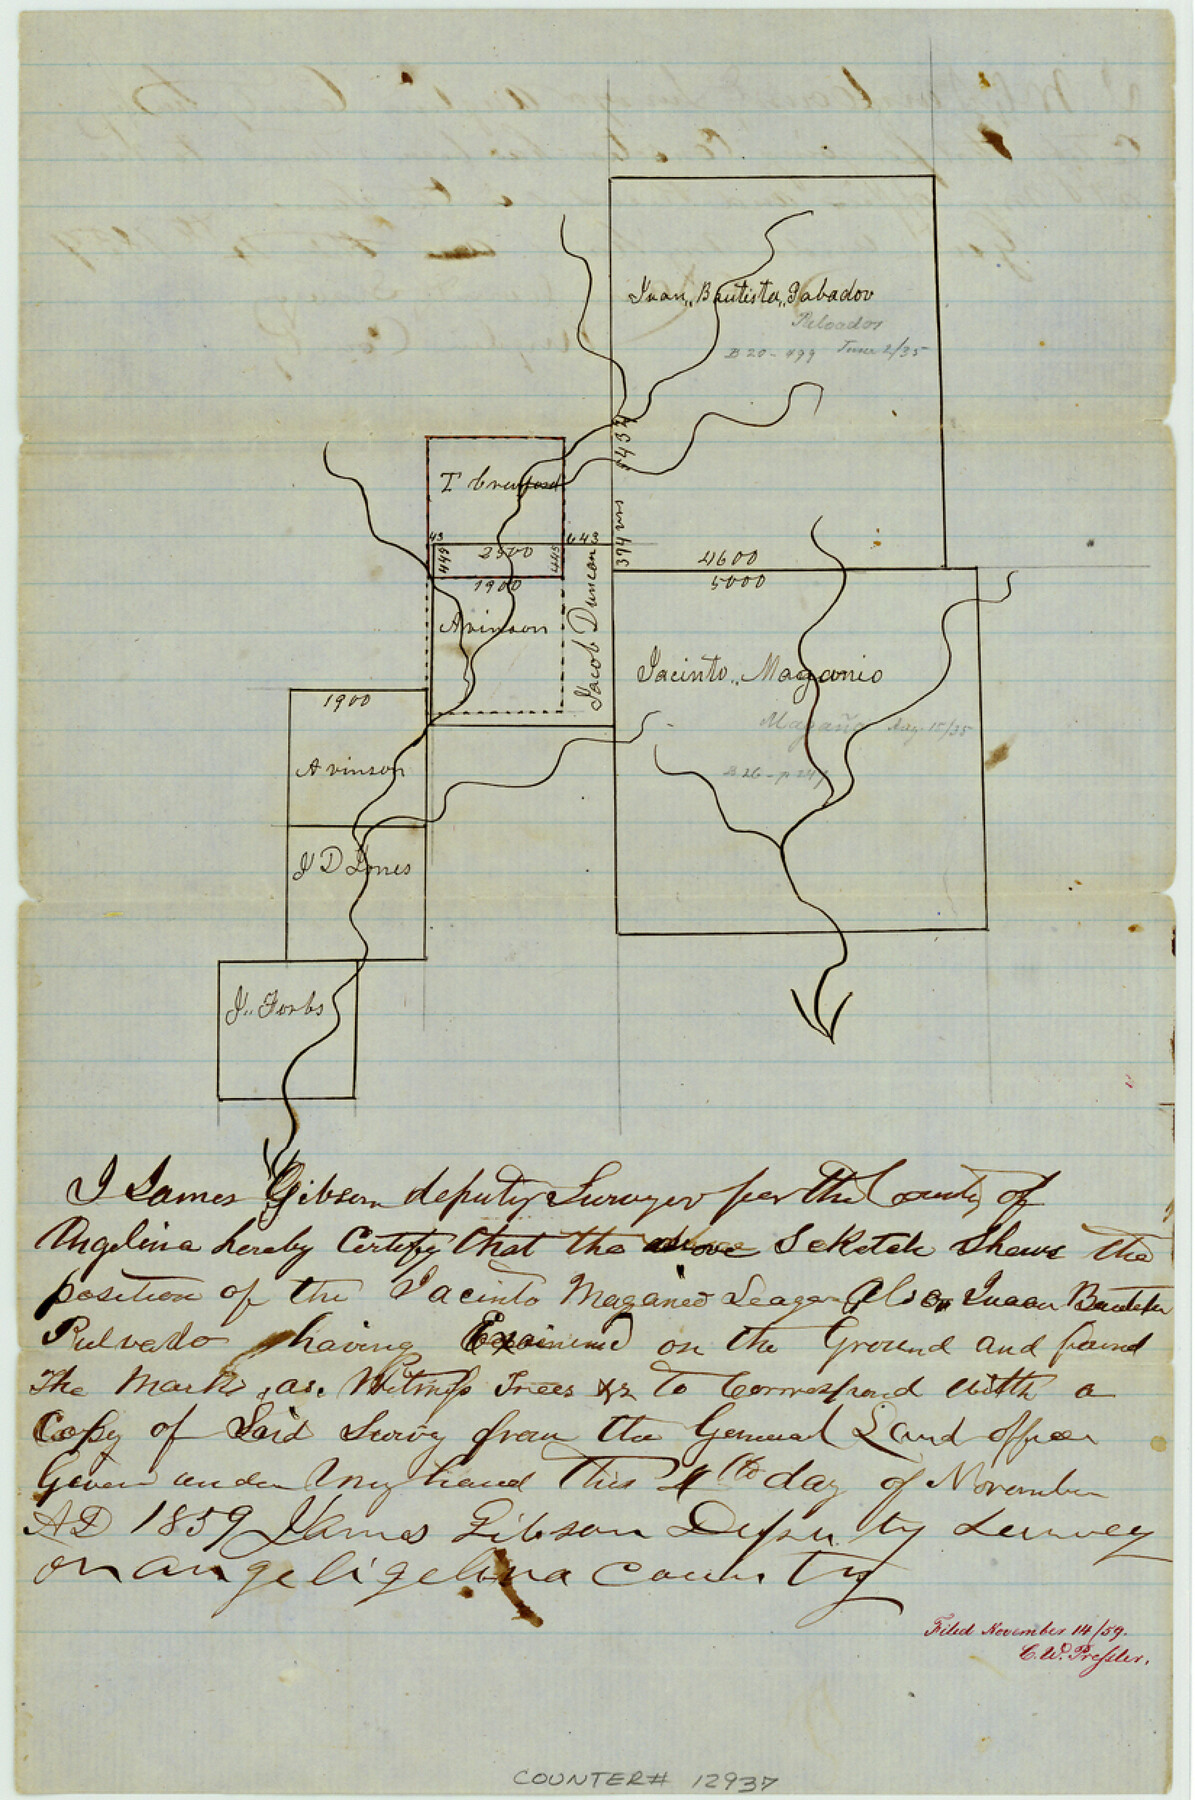 Juan,, Bautista,, Pabador
Pulvador
B 20 - 499 June 2/35
5434
374 vrs
T Crawford
43
643
449
2500
445
1900
4600
5000
Jacob Duncan
A vinson
Jacinto,, Maganio
Magaña May 15/35
B 26 - p 247
1900
A vinson
J D Jones
J,, Forbs
I James Gibson deputy Surveyor for the County of
Angelina hereby Certify that the above Seketch Shews the
position of the Jacinto Maganeo Leage Also Juaan Bautista
Pulvado having Exainined on the Ground and found
The Marks as. Witness Trees &c To Correspond with a
Copy of Said Survey from the General Land office
Given under My hand This 4th day of November
AD 1859 James Gibson Deputy Survey
or angeligelina County
Filed November 14/59.
C. W. Pressler.
COUNTER# 12937